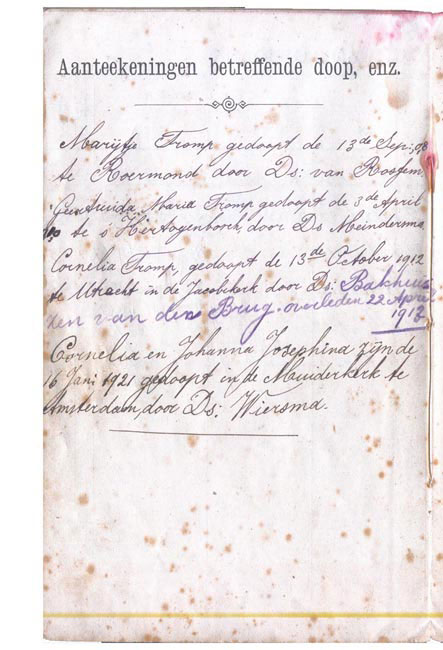 Aanteekeningen betreffende doop, enz.
Marijtje Tromp gedoopt de 13de Sep: 08
te Roermond door Ds: van Rossem
Geertruida Maria Tromp gedoopt de 3de April
te s Hertogenbosch, door Ds Meindersma
Cornelia Tromp, gedoopt de 13de October 1912
te Utrecht in de Jacobikerk door Ds: Bakhuis
zen van den Brug. overleden 22 April
1913
Cornelia en Johanna Josephina zijn de
16 Jan: 1921 gedoopt in de Muiderkerk te
Amsterdam door Ds: Wiersma.